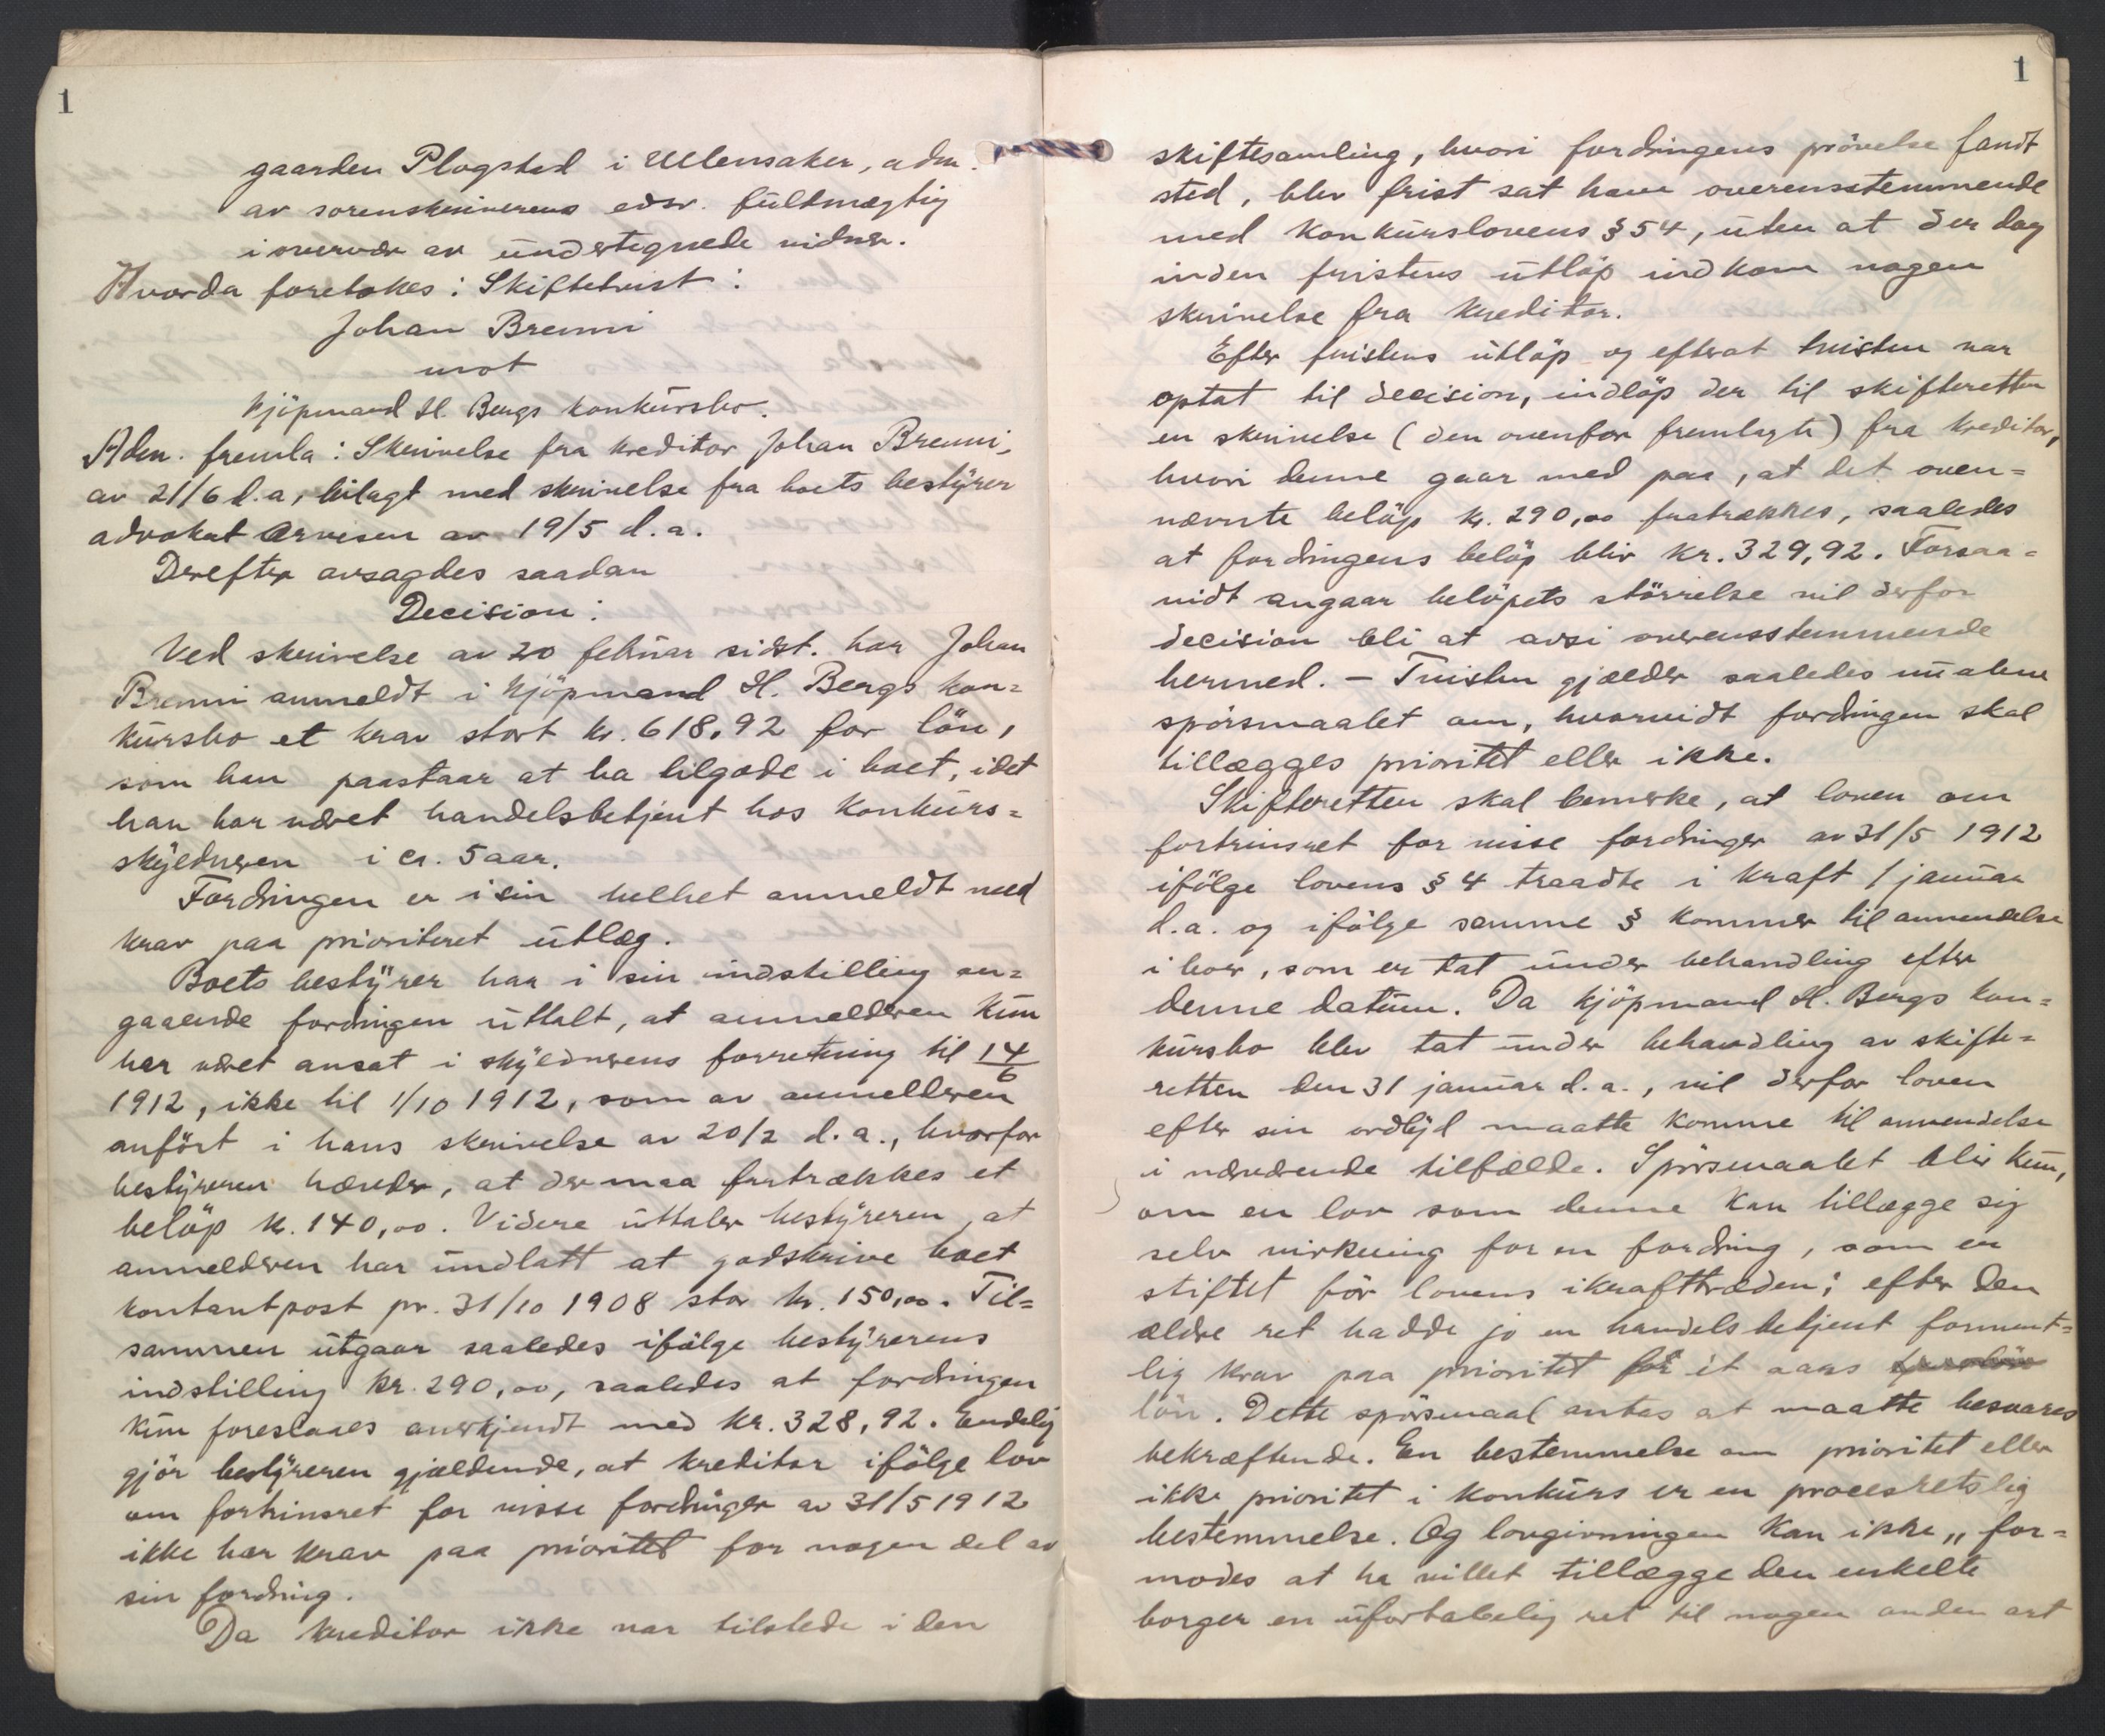 1
gaarden Plogstad i Ullensaker, adm.
av sorenskriverens edsv. fuldmægtig
i overvær av undertegnede vidner.
Hvorda foretokes: Skiftetvist:
Johan Brenni
mot
kjöpmand H. Bergs konkursbo.
Adm. fremla: Skrivelse fra kreditor Johan Brenni,
av 21/6 d.a., bilagt med skrivelse fra boets bestyrer
advokat Arvesen av 19/5 d.a.
Derefter avsagdes saadan
Decision:
Ved skrivelse av 20 februar sidst. har Johan
Brenni anmeldt i kjöpmand H. Bergs kon=
kursbo et krav stort kr. 618,92 for lön,
som han paastaar at ha tilgode i boet, idet
han har været handelsbetjent hos konkurs=
skyldneren i ca. 5 aar.
Fordringen er i sin helhet anmeldt med
krav paa prioriteret utlæg.
Boets bestyrer har i sin indstilling an=
gaaende fordringen uttalt, at anmelderen kun
har været ansat i skyldnerens forretning til 14/6
1912, ikke til 1/10 1912, som av anmelderen
anfört i hans skrivelse av 20/2 d.a., hvorfor
bestyreren hævder, at der maa fratrækkes et
belöp kr. 140,00. Videre uttaler bestyreren, at
anmelderen har undlatt at godskrive boet
kontantpost pr. 31/10 1908 stor kr. 150,00. Til=
sammen utgaar saaledes ifölge bestyrerens
indstilling kr. 290,00, saaledes at fordringen
kun foreslaaes anerkjendt med kr. 328,92. Endelig
gjör bestyreren gjældende, at kreditor ifölge lov
om fortrinsret for visse fordringer av 31/5 1912
ikke har krav paa prioritet for nogen del av
sin fordring.
Da kreditor ikke var tilstede i den
1
skiftesamling, hvori fordringens prövelse fandt
sted, blev frist sat ham overensstemmende
med konkurslovens § 54, uten at der dog
inden fristens utlöp indkom nogen
skrivelse fra kreditor.
Efter fristens utlöp og efterat tvisten var
optat til decision, indlöp der til skifteretten
en skrivelse (den ovenfor fremlagte) fra kreditor,
hvori denne gaar med paa, at det oven=
nævnte belöp kr. 290,00 fratrækkes, saaledes
at fordringens belöp blir kr. 329,92. Forsaa=
vidt angaar belöpets störrelse vil derfor
decision bli at avsi overensstemmende
hermed. – Tvisten gjælder saaledes nu alene
spörsmaalet om, hvorvidt fordringen skal
tillægges prioritet eller ikke.
Skifteretten skal bemerke, at loven om
fortrinsret for visse fordringer av 31/5 1912
ifölge lovens § 4 traadte i kraft 1 januar
d.a. og ifölge samme § kommer til anvendelse
i boer, som er tat under behandling efter
denne datum. Da kjöpmand H. Bergs kon=
kursbo blev tat under behandling av skifte=
retten den 31 januar d.a., vil derfor loven
efter sin ordlyd maatte komme til anvendelse
i nærværende tilfælde. Spörsmaalet blir kun,
om en lov som denne kan tillægge sig
selv virkning for en fordring, som er
stiftet för lovens ikrafttræden; efter den
ældre ret hadde jo en handelsbetjent forment=
lig krav paa prioritet for et aars
lön. Dette spörsmaal antas at maatte besvares
bekræftende. En bestemmelse om prioritet eller
ikke prioritet i konkurs er en procesretslig
bestemmelse. Og lovgivningen kan ikke „for=
modes at ha villet tillægge den enkelte
borger en ufortabelig ret til nogen anden art